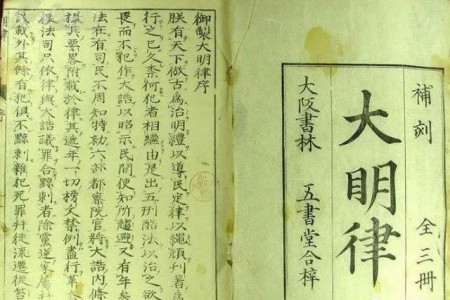 補刻 全三冊
大明律
大阪書林 五書堂合梓
御製大明律序
朕有天下倣古為治明禮以導民定律以繩頑刊著為
行之已久奈何犯者相繼由是出五刑酷法以治之欲
畏而不犯作大誥以昭示民間使知所趨避又有年
法在有司民不周知特勑六部都察院官將大誥內條
撮其要畧附載於律其遞年一切榜文禁例盡行革
種法司只依律與大誥議罪合黥刺者除黨逆家屬
該載外其餘有犯俱不黥刺雜犯死罪并徒流遷徙笞